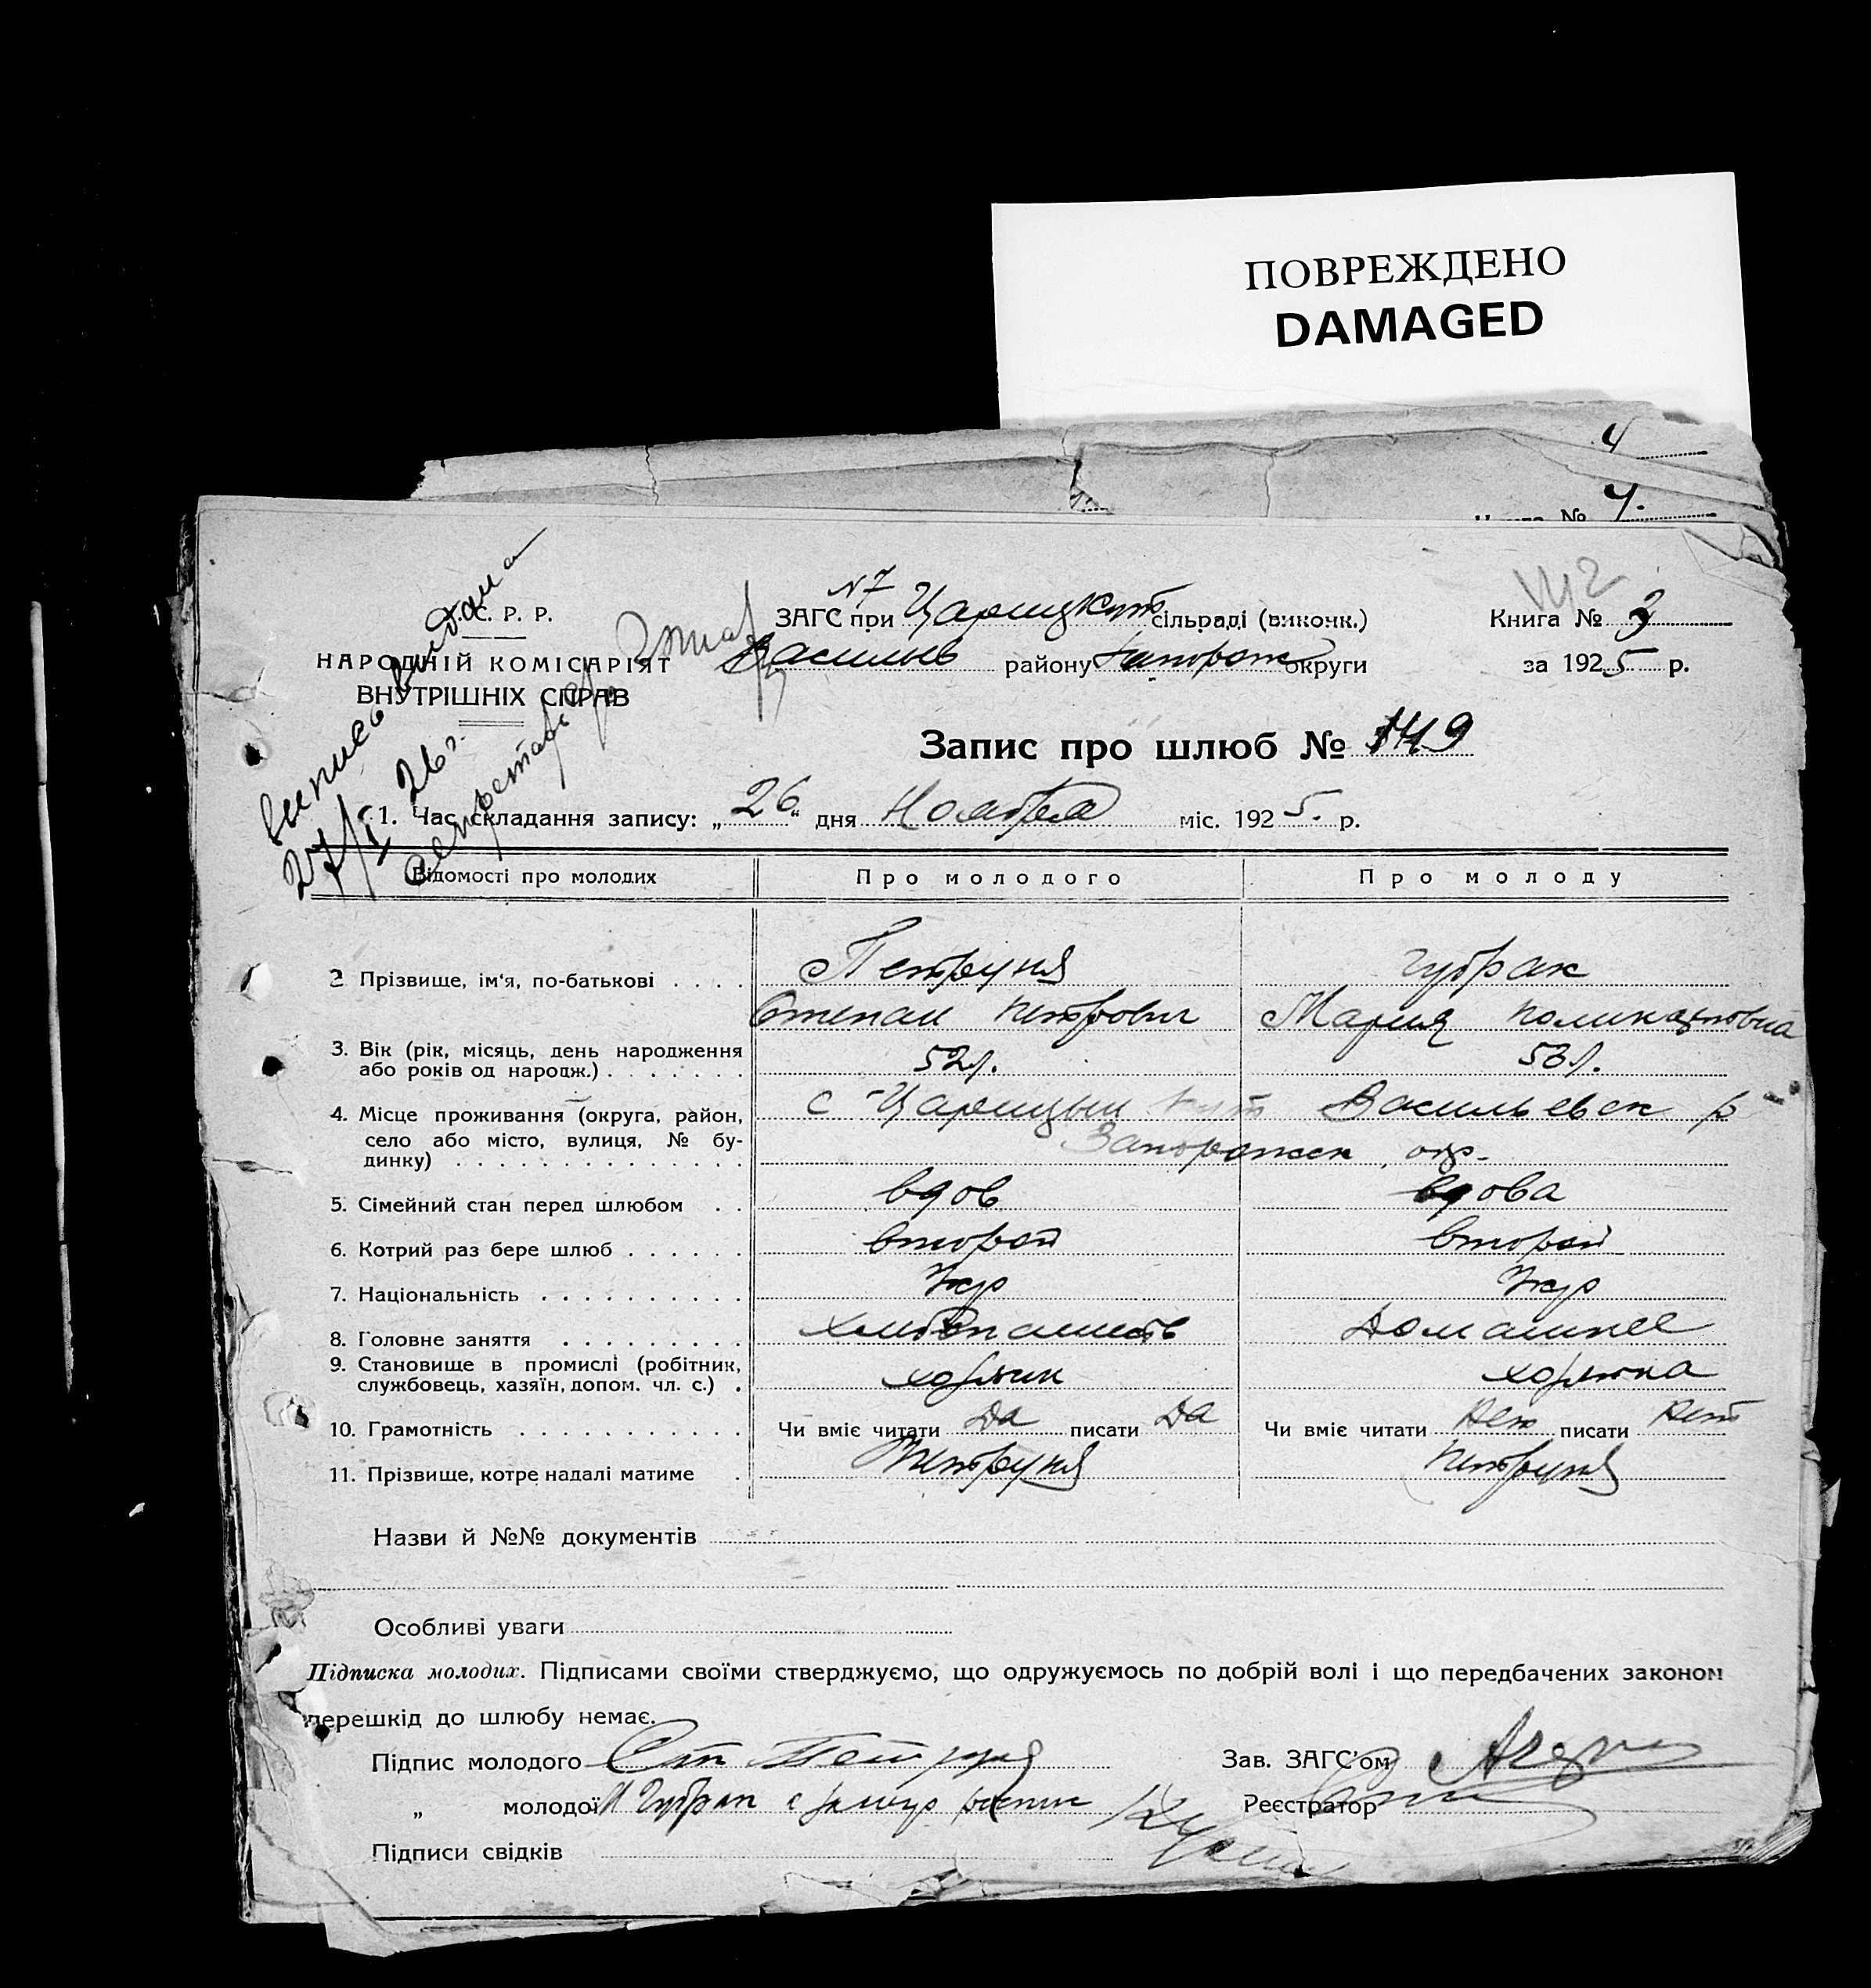 ПОВРЕЖДЕНО
DAMAGED
4
Книга № 4.
выпись выдана
27/I 26 г.
секретарь
У. С. Р. Р.
НАРОДНІЙ КОМІСАРІЯТ
ВНУТРІШНІХ СПРАВ
N7
ЗАГС при Царицкут сільраді (виконк.)
Васильев району Запорож округи
Книга № 3
за 1925 р.
Запис про шлюб № 149
1. Час складання запису: „26“ дня Ноября міс. 1925. р.
Відомості про молодих Про молодого Про молоду
2 Прізвище, ім'я, по-батькові . . . . Петруня Губрак
Степан Петрович Мария Поликарповна
3. Вік (рік, місяць, день народження
або років од народж.) . . . . . . . 52 л. 53 л.
4. Місце проживання (округа, район, с Царицын Кут Васильевск р
село або місто, вулиця, № бу-
динку) . . . . . . . . . . . . . . Запорожск окр.
5. Сімейний стан перед шлюбом . . вдов вдова
6. Котрий раз бере шлюб . . . . . . второй второй
7. Національність . . . . . . . . . . Укр Укр
8. Головне заняття . . . . . . . . . хлебопашеств Домашнее
9. Становище в промислі (робітник,
службовець, хазяїн, допом. чл. с.) .
10. Грамотність . . . . . . . . . . . Чи вміє читати да писати да Чи вміє читати нет писати нет
11. Прізвище, котре надалі матиме . Петруня Петруня
Назви й №№ документів
Особливі уваги
Підписка молодих. Підписами своїми стверджуємо, що одружуємось по добрій волі і що передбачених законом
перешкід до шлюбу немає.
Підпис молодого Сте Петруня Зав. ЗАГС'ом
„ молодої Губрак Реєстратор
Підписи свідків